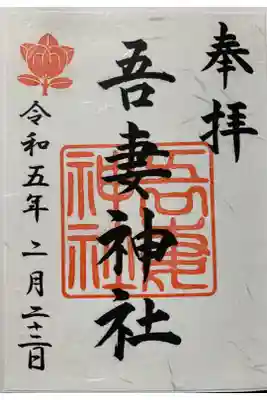 奉拝
吾妻神社
吾妻
神社
令和五年二月二十二日